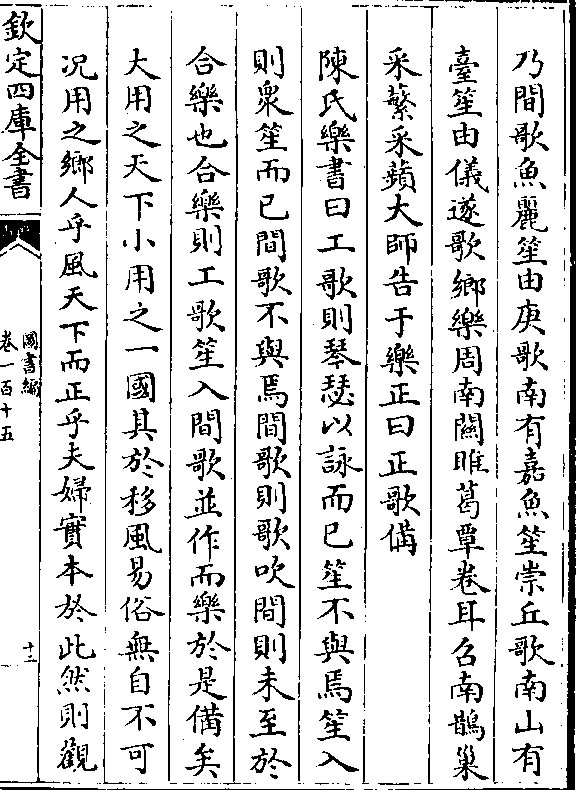 乃間歌魚麗笙由庚歌南有嘉魚笙崇丘歌南山有
臺笙由儀遂歌鄉樂周南關雎葛覃卷耳召南鵲巢
采蘩采蘋大師告于樂正曰正歌備
陳氏樂書曰工歌則琴瑟以詠而已笙不與焉笙入
則衆笙而已間歌不與焉間歌則歌吹間則未至於
合樂也合樂則工歌笙入間歌並作而樂於是備矣
大用之天下小用之一國其於移風易俗無自不可
况用之鄉人乎風天下而正乎夫婦實本於此然則觀
欽定四庫全書
圖書編
卷一百十五
十二